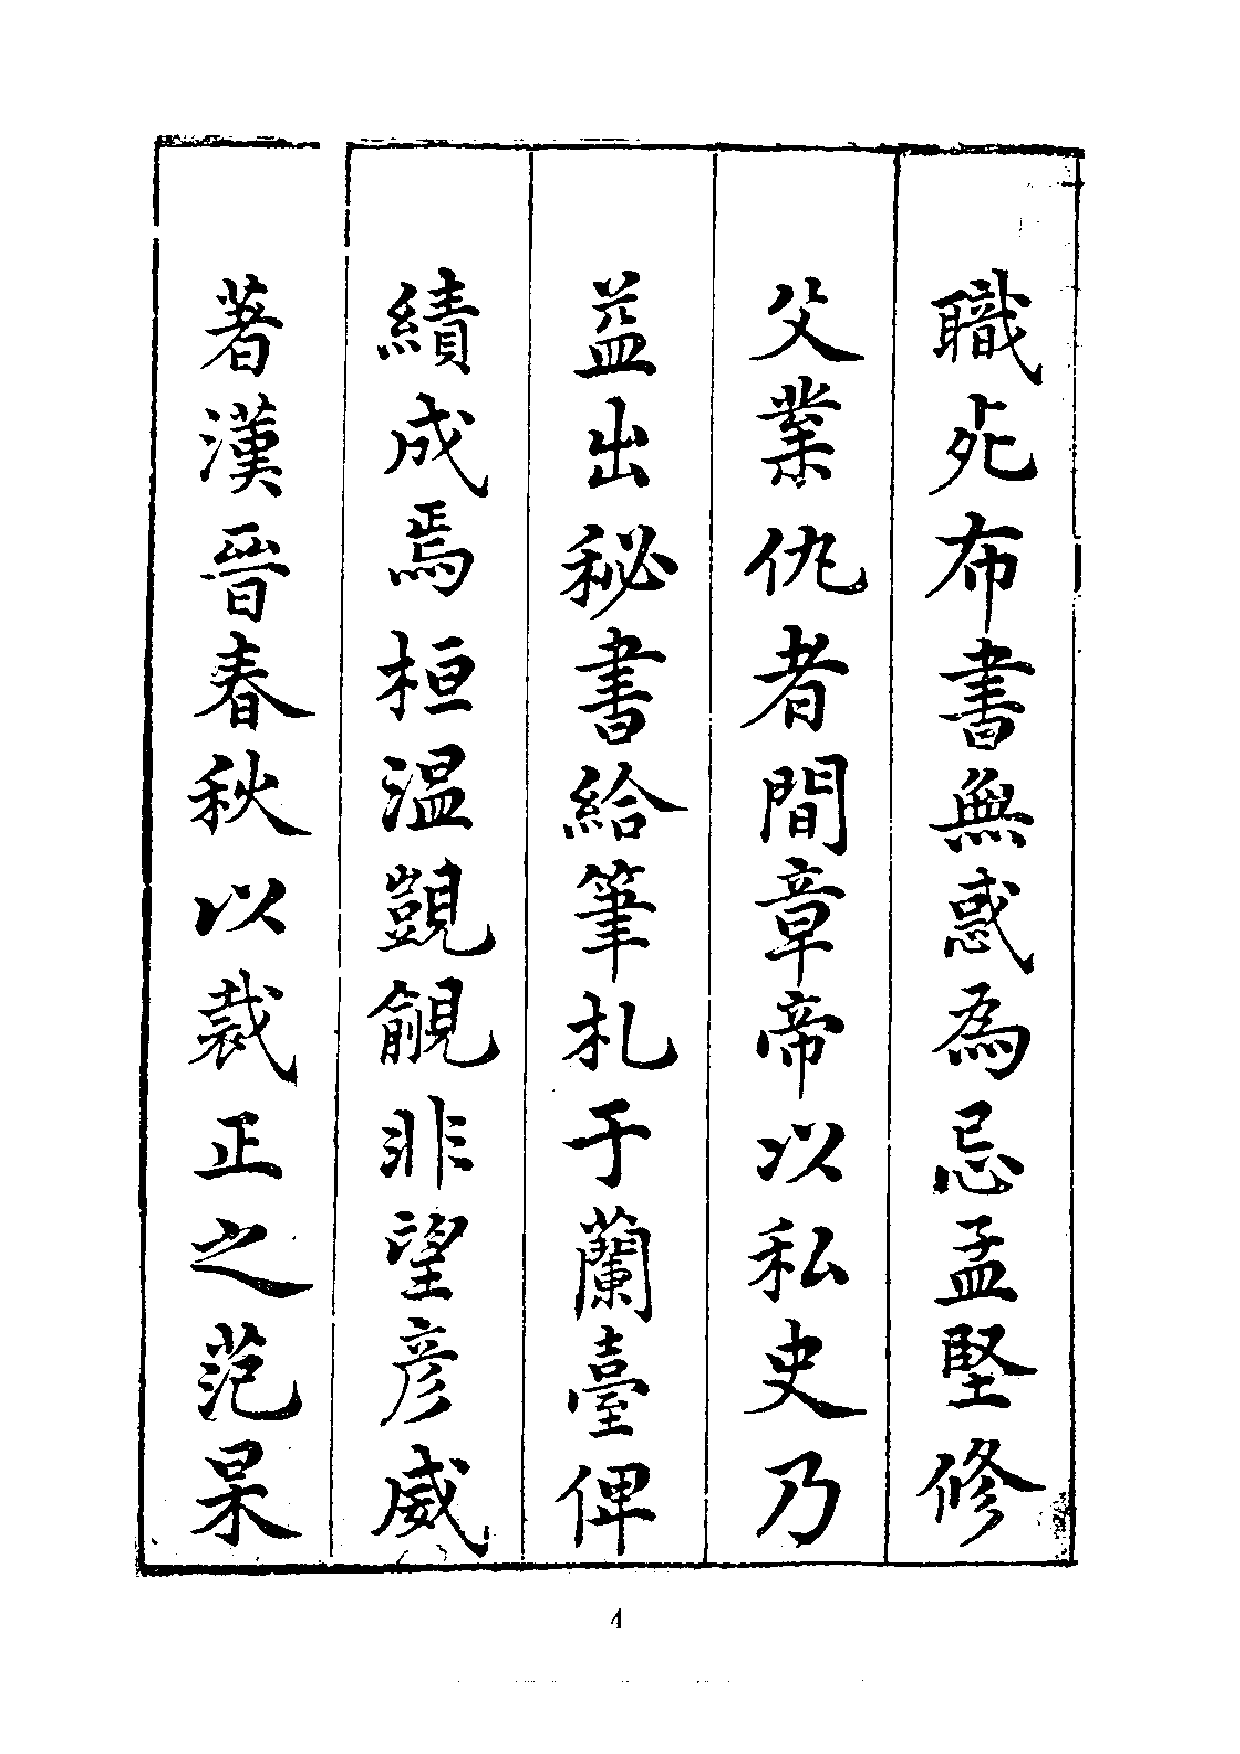 職死布書無惑為忌孟堅修
父業仇者間章帝以私史乃
益出秘書給筆札于蘭臺俾
績成焉桓温覬覦非望彦威
著漢晉春秋以裁正之范杲
4